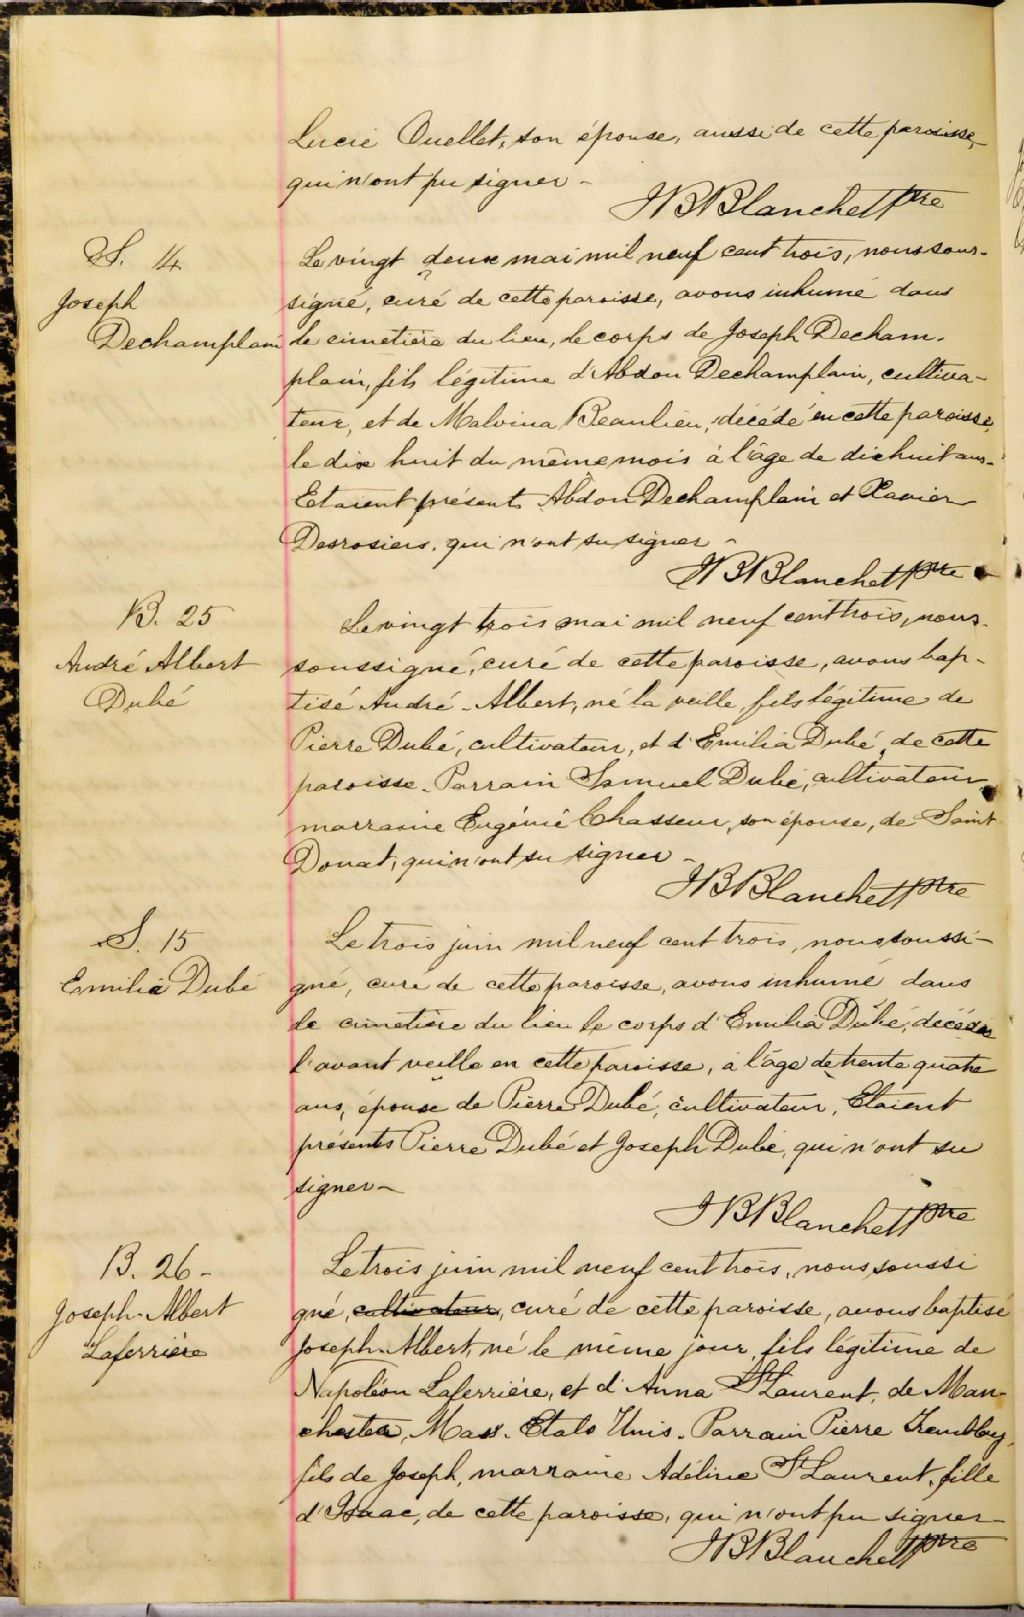 Lucie Ouellet, son épouse, aussi de cette paroisse,
qui n'ont pu signer -
JBBlanchet ptre
S. 14
Joseph
Dechamplain
Le vingt deux mai mil neuf cent trois, nous sous-
signé, curé de cette paroisse, avons inhumé dans
le cimetière du lieu, le corps de Joseph Decham-
plain, fils légitime d'Abdon Dechamplain, cultiva-
teur, et de Malvina Beaulieu, décédé en cette paroisse,
le dix huit du même mois à l'âge de dixhuit ans.
Etaient présents Abdon Dechamplain et Xavier
Desrosiers, qui n'ont su signer -
JBBlanchet ptre
B. 25
André Albert
Dubé
Le vingt trois mai mil neuf cent trois, nous
soussigné, curé de cette paroisse, avons bap-
tisé André-Albert, né la veille, fils légitime de
Pierre Dubé, cultivateur, et d'Emilia Dubé, de cette
paroisse. Parrain Samuel Dubé, cultivateur,
marraine Eugénie Chasseur, son épouse, de Saint
Donat, qui n'ont su signer -
JBBlanchet ptre
S. 15
Emilia Dubé
Le trois juin mil neuf cent trois, nous soussi-
gné, curé de cette paroisse, avons inhumé dans
le cimetière du lieu le corps d'Emilia Dubé, décédée
l'avant veille en cette paroisse, à l'âge de trente quatre
ans, épouse de Pierre Dubé, cultivateur, Etaient
présents Pierre Dubé et Joseph Dubé, qui n'ont su
signer -
JBBlanchet ptre
B. 26 -
Joseph-Albert
Laferrière
Le trois juin mil neuf cent trois, nous soussi
gné, cultivateur, curé de cette paroisse, avons baptisé
Joseph-Albert, né le même jour, fils légitime de
Napoléon Laferrière, et d'Anna St Laurent, de Man-
chester, Mass. Etats Unis. Parrain Pierre Tremblay,
fils de Joseph, marraine Adéline St Laurent, fille
d'Isaac, de cette paroisse, qui n'ont pu signer -
JBBlanchet ptre